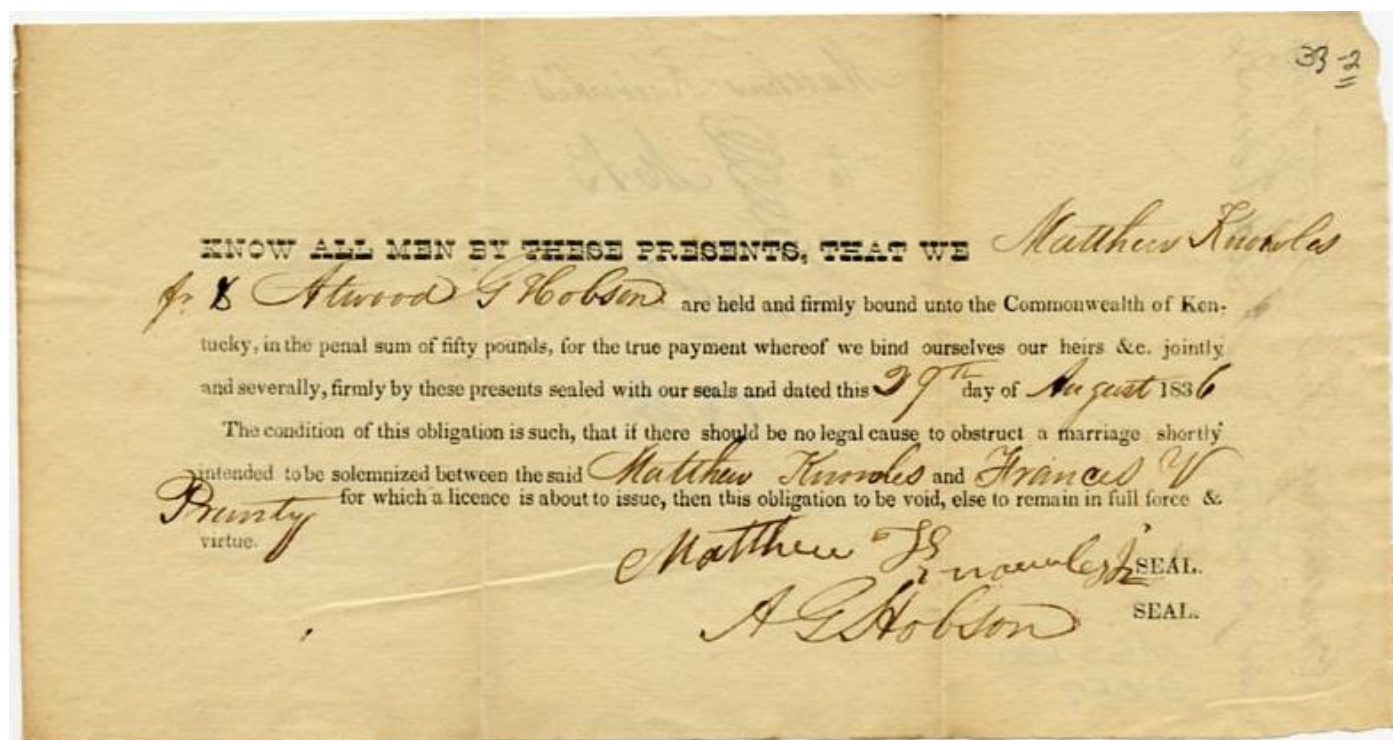 33-2
KNOW ALL MEN BY THESE PRESENTS, THAT WE Matthew Knowles
Jr. & Atwood G Hobson are held and firmly bound unto the Commonwealth of Ken-
tucky, in the penal sum of fifty pounds, for the true payment whereof we bind ourselves our heirs &c. jointly
and severally, firmly by these presents sealed with our seals and dated this 29th day of August 1836
The condition of this obligation is such, that if there should be no legal cause to obstruct a marriage shortly
intended to be solemnized between the said Matthew Knowles and Frances V
Prunty for which a licence is about to issue, then this obligation to be void, else to remain in full force &
virtue.
Matthew Knowles Jr SEAL.
A G Hobson SEAL.